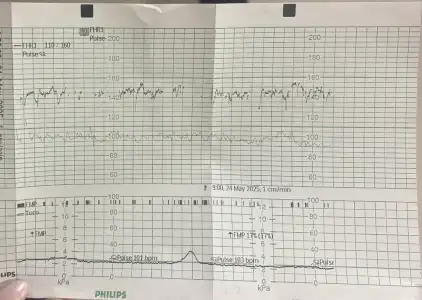 FHR1
Pulse 200
200
FHR1 110 / 160
Pulse
180
180
160
160
140
140
120
120
100
100
80
80
60
60
9:00, 24 May 2025, 1 cm/min
FMP
Toco
100
100
10
80
12
80
8
60
10
60
FMP
6
40
FMP 17% (17%)
8
40
4
20
Pulse 101 bpm
Pulse 103 bpm
4
20
Pulse
2
0
2
0
0
0
kPa
kPa
LIPS
PHILIPS